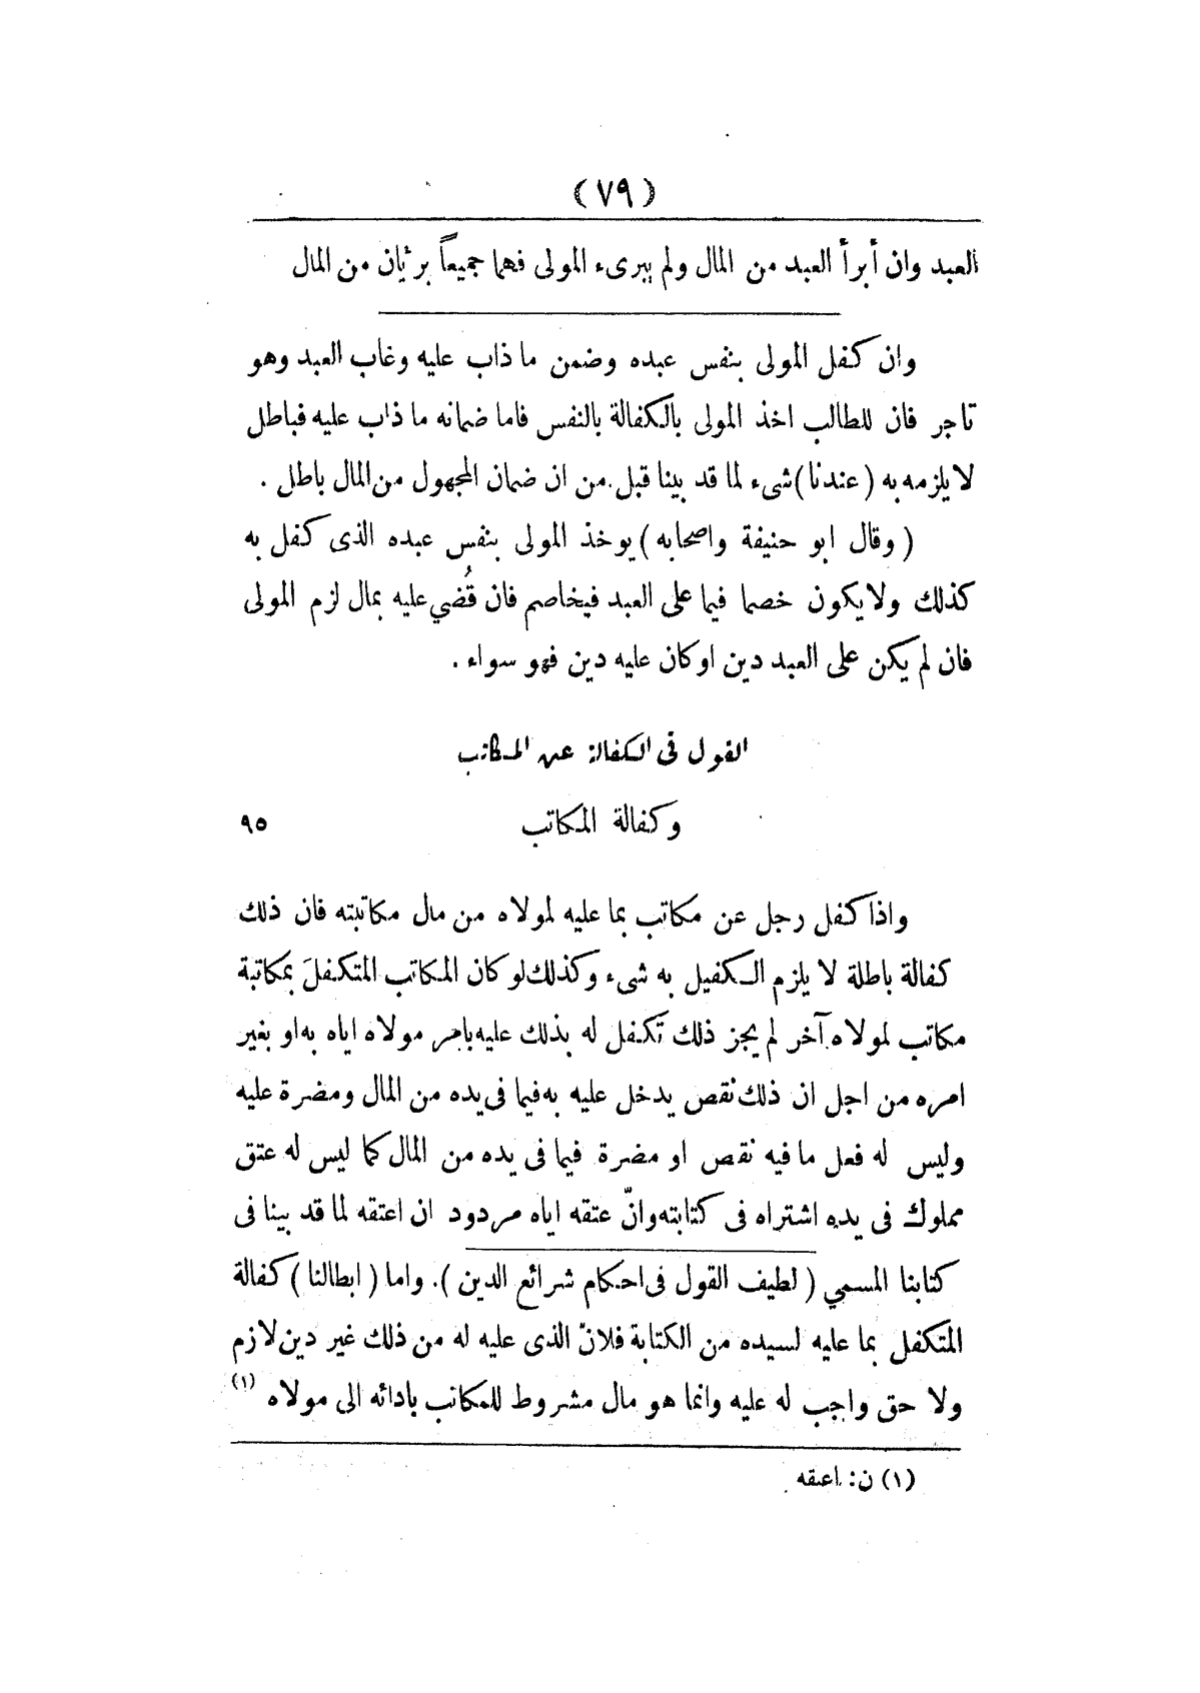 (٧٩)
العبد وان أبرأ العبد من المال ولم يبرىء المولى فهما جميعاً برئيان من المال
وان كفل المولى بنفس عبده وضمن ما ذاب عليه وغاب العبد وهو
تاجر فان للطالب اخذ المولى بالكفالة بالنفس فاما ضمانه ما ذاب عليه فباطل
لا يلزمه به (عندنا) شىء لما قد بينا قبل من ان ضمان المجهول من المال باطل .
(وقال ابو حنيفة واصحابه) يوخذ المولى بنفس عبده الذى كفل به
كذلك ولا يكون خصما فيما على العبد فيخاصم فان قُضي عليه بمال لزم المولى
فان لم يكن على العبد دين او كان عليه دين فهو سواء .
القول فى الكفالة عن المكاتب
وكفالة المكاتب ٩٥
واذا كفل رجل عن مكاتب بما عليه لمولاه من مال مكاتبته فان ذلك
كفالة باطلة لا يلزم الكفيل به شىء وكذلك لو كان المكاتب المتكفلَ بمكاتبة
مكاتب لمولاه آخر لم يجز ذلك تكفل له بذلك عليه بامر مولاه اياه به او بغير
امره من اجل ان ذلك نقص يدخل عليه به فيما فى يده من المال ومضرة عليه
وليس له فعل ما فيه نقص او مضرة فيما فى يده من المال كما ليس له عتق
مملوك فى يده اشتراه فى كتابته وانّ عتقه اياه مردود ان اعتقه لما قد بينا فى
كتابنا المسمي (لطيف القول فى احكام شرائع الدين). واما (ابطالنا) كفالة
المتكفل بما عليه لسيده من الكتابة فلانّ الذى عليه له من ذلك غير دين لازم
ولا حق واجب له عليه وانما هو مال مشروط للمكاتب بادائه الى مولاه (١)
(١) ن: اعتقه